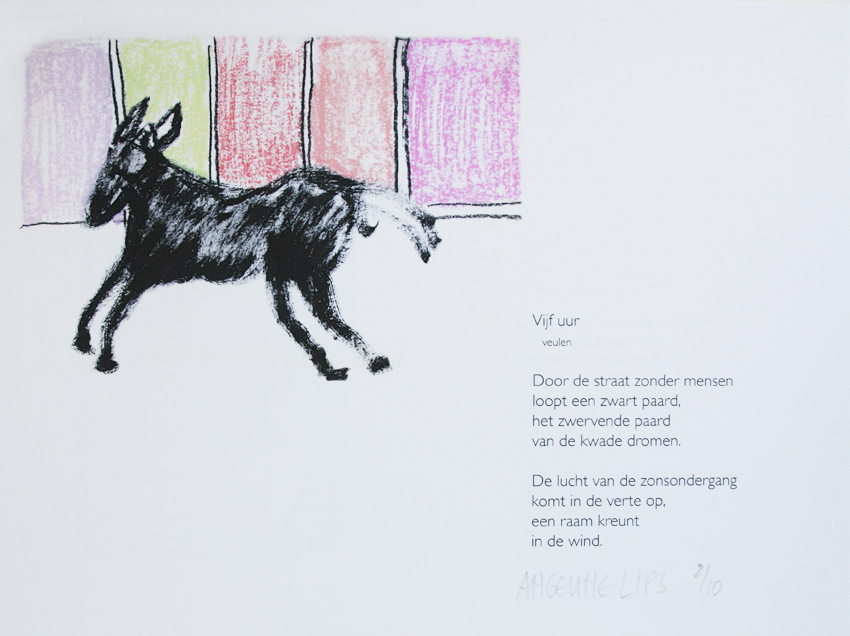 Vijf uur
veulen
Door de straat zonder mensen
loopt een zwart paard,
het zwervende paard
van de kwade dromen.
De lucht van de zonsondergang
komt in de verte op,
een raam kreunt
in de wind.
ANGELINE LIPS 2/10